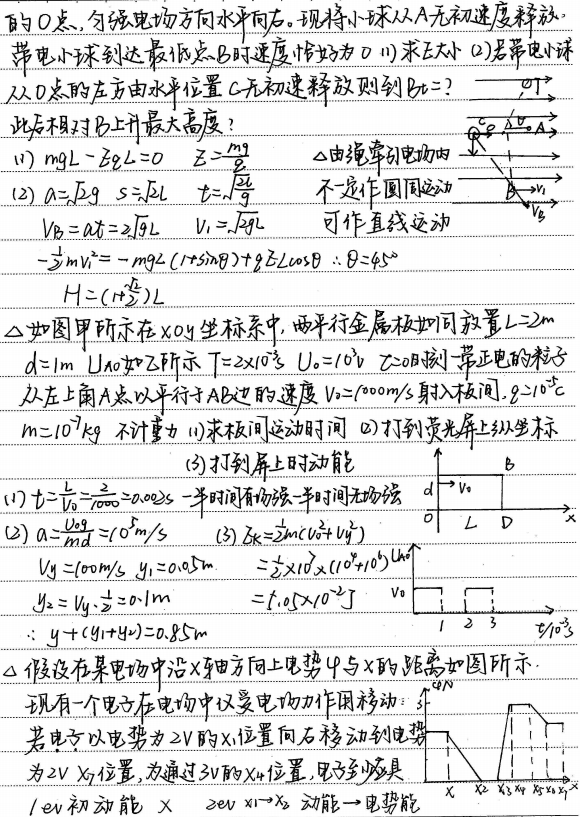 的O点，匀强电场方向水平向右。现将小球从A无初速度释放，
带电小球到达最低点B时速度恰好为0 (1)求E大小 (2)若带电小球
从O点的左方由水平位置C无初速释放则到Bt=?
此后相对B上升最大高度?
(1) mgL-EqL=0 E=mg/q △由绳牵引电场内
(2) a=√2g s=√2L t=√(2L/g) 不一定作圆周运动
VB=at=2√gL V1=√2gL 可作直线运动
-½mv1²=-mgL(1+sinθ)+qELcosθ ∴θ=45°
H=(1+√2/2)L
C O A
B V1
VB
△如图甲所示在xoy坐标系中，两平行金属板如间放置L=2m
d=1m UAO如乙所示 T=2×10⁻³s U0=10³v t=0时刻一带正电的粒子
从左上角A点以平行于AB边的速度V0=1000m/s射入板间.q=10⁻⁵C
m=10⁻⁷kg 不计重力 (1)求板间运动时间 (2)打到荧光屏上纵坐标
(3)打到屏上时动能
(1) t=L/V0=2/1000=0.002s 一半时间有场强一半时间无场强
(2) a=U0q/md=10⁵m/s (3) Ek=½m(V0²+Vy²)
Vy=100m/s y1=0.05m =½×10⁻⁷×(10⁴+10⁶)
y2=Vy·½=0.1m =5.05×10⁻²J
∴ y+(y1+y2)=0.85m
B
d V0
O L D x
UAO
V0
1 2 3 t/10⁻³s
△ 假设在某电场中沿X轴方向上电势φ与X的距离如图所示.
现有一个电子在电场中仅受电场力作用移动：
若电子以电势为2V的X1位置向右移动到电势
为2V X7位置,为通过3V的X4位置,电子至少应具
1ev初动能 × 2ev x1→x2 动能→电势能
φ/V
x x2 x3 x4 x5 x6 x7 x